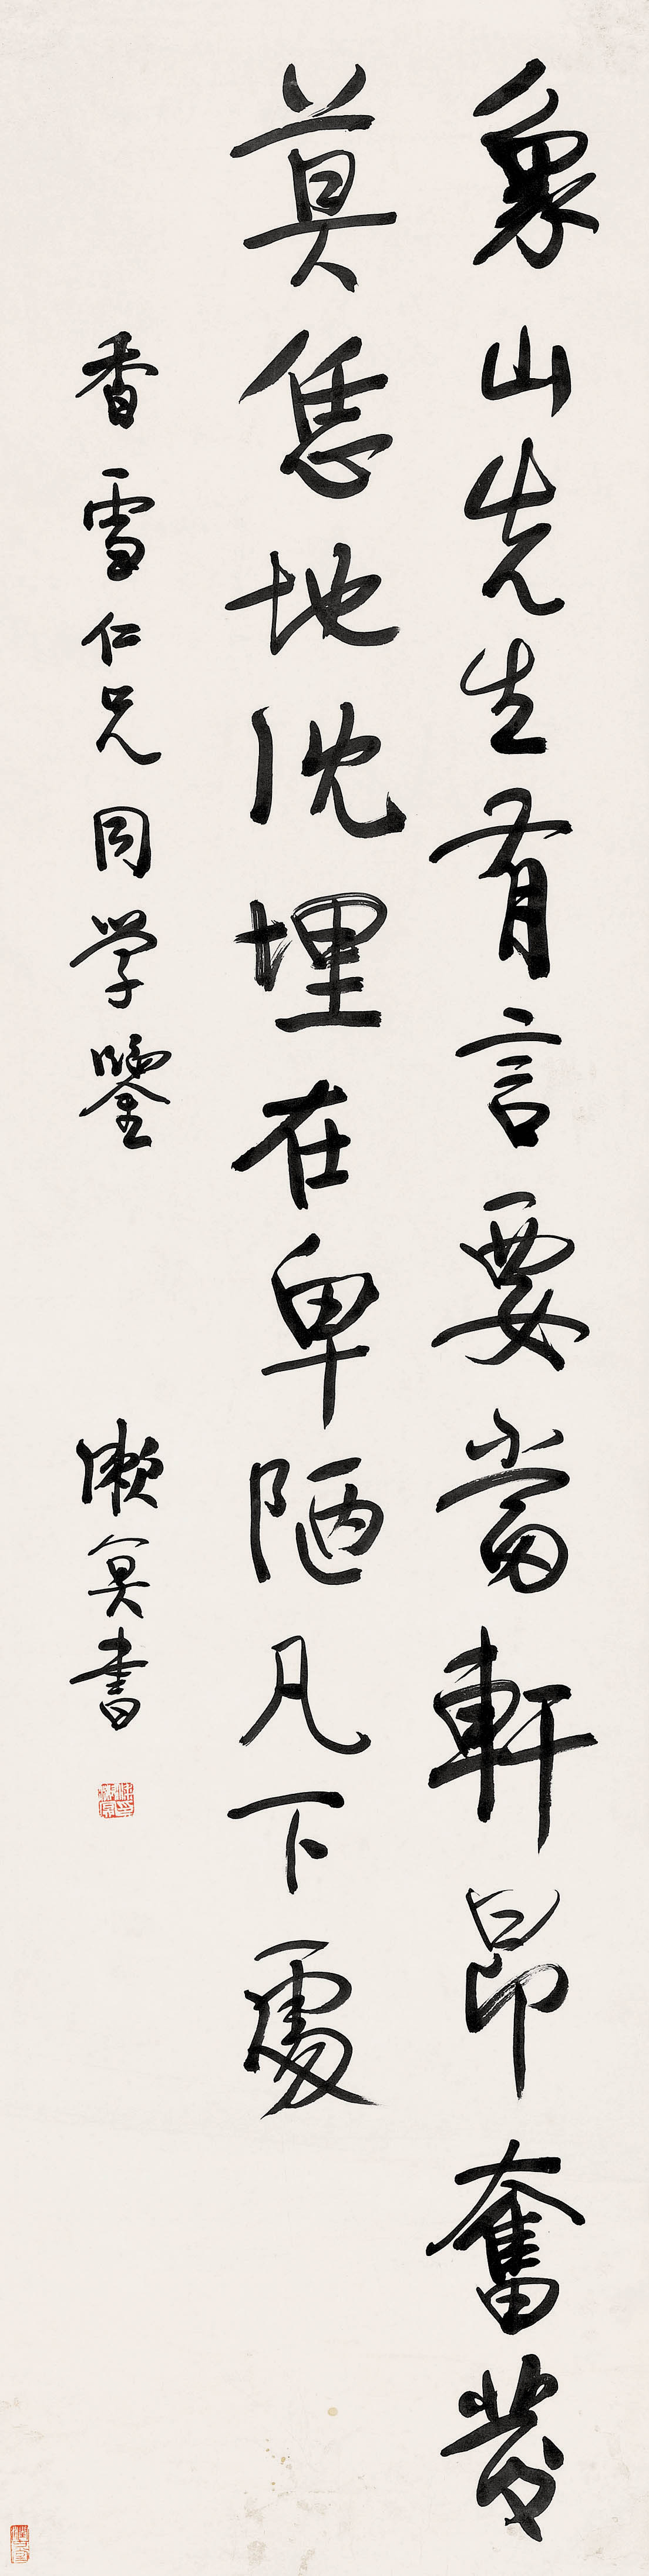 象山先生有言要當軒昂奮發
莫恁地沈埋在卑陋凡下處
香雪仁兄同学鑒
漱冥書